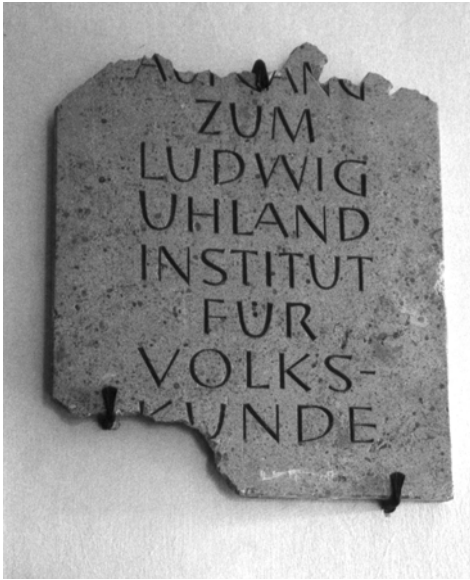 AUFGANG
ZUM
LUDWIG
UHLAND
INSTITUT
FÜR
VOLKS-
KUNDE